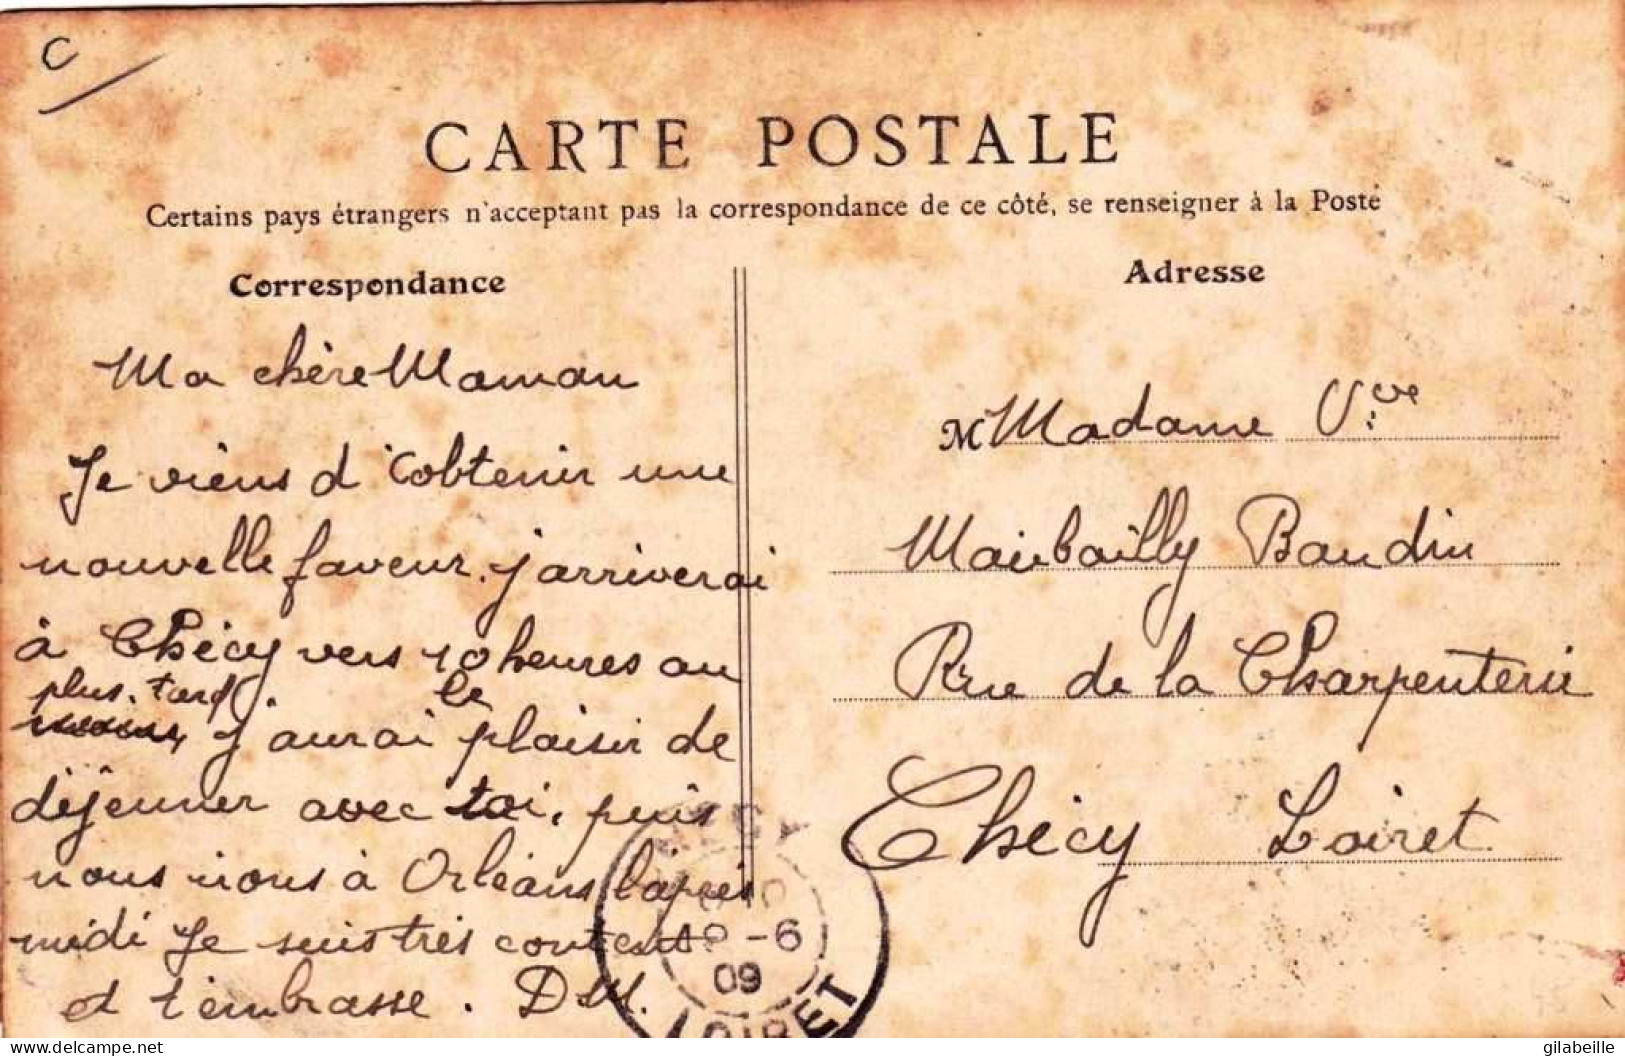 C
CARTE POSTALE
Certains pays étrangers n'acceptant pas la correspondance de ce côté, se renseigner à la Poste
Correspondance
Ma chère Maman
Je viens d'obtenir une
nouvelle faveur. j'arriverai
à Chécy vers 10 heures au
plus tard. le
moins, j'aurai plaisir de
déjeuner avec toi, puis
nous irons à Orléans l'après
midi Je suis très content
et t'embrasse. DM.
Adresse
M Madame Vve
Baudin
Rue de la Charpenterie
Chécy Loiret
-6
09
LOIRET
www.delcampe.net
gilabeille